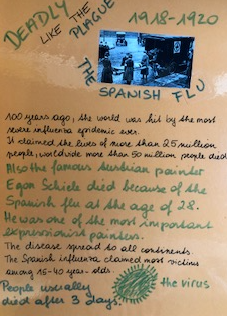 DEADLY
LIKE THE PLAGUE
1918-1920
THE SPANISH FLU
100 years ago, the world was hit by the most
severe influenza epidemic ever.
It claimed the lives of more than 25 million
people, worldwide more than 50 million people died.
Also the famous Austrian painter
Egon Schiele died because of the
Spanish flu at the age of 28.
He was one of the most important
expressionist painters.
The disease spread to all continents.
The Spanish influenza claimed most victims
among 15-40 year-olds.
People usually
died after 3 days.
the virus